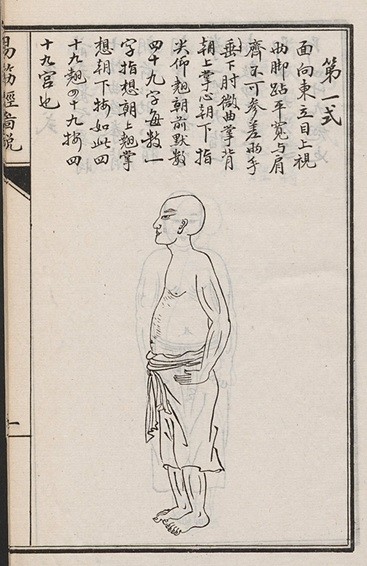 第一式
面向東立目上視
両脚跕平寬与肩
齊不可參差両手
垂下肘微曲掌背
朝上掌心朝下指
尖仰翹朝前默數
四十九字每數一
字指想朝上翹掌
想朝下按如此四
十九翹四十九按四
十九宫也
易筋經圖說
一